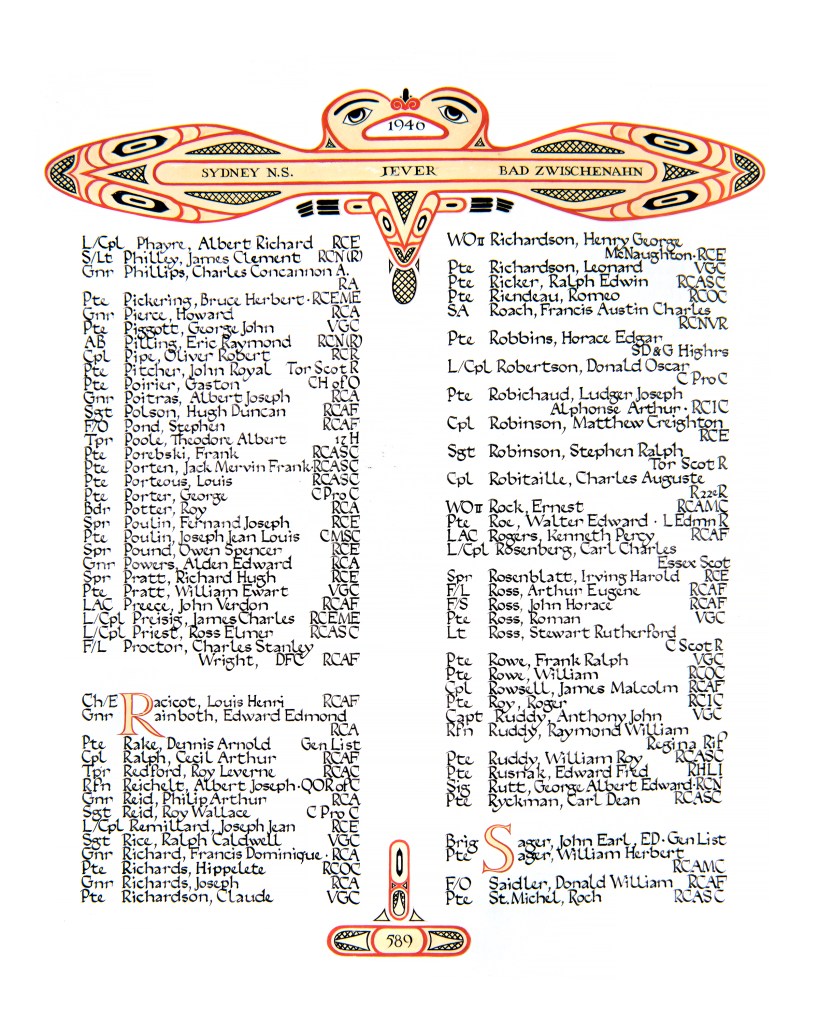 1946
SYDNEY N.S. JEVER BAD ZWISCHENAHN
L/Cpl Phayre, Albert Richard RCE
S/Lt Philley, James Clement RCN(R)
Gnr Phillips, Charles Concannon A.
RA
Pte Pickering, Bruce Herbert·RCEME
Gnr Pierce, Howard RCA
Pte Piggott, George John VGC
AB Pilling, Eric Raymond RCN(R)
Cpl Pipe, Oliver Robert RCR
Pte Pitcher, John Royal Tor Scot R
Pte Poirier, Gaston CH of O
Gnr Poitras, Albert Joseph RCA
Sgt Polson, Hugh Duncan RCAF
F/O Pond, Stephen RCAF
Tpr Poole, Theodore Albert 17 H
Pte Porebski, Frank RCASC
Pte Porten, Jack Mervin Frank·RCASC
Pte Porteous, Louis RCASC
Pte Porter, George C Pro C
Bdr Potter, Roy RCA
Spr Poulin, Fernand Joseph RCE
Pte Poulin, Joseph Jean Louis CMSC
Spr Pound, Owen Spencer RCE
Gnr Powers, Alden Edward RCA
Spr Pratt, Richard Hugh RCE
Pte Pratt, William Ewart VGC
LAC Preece, John Verdon RCAF
L/Cpl Preisig, James Charles RCEME
L/Cpl Priest, Ross Elmer RCASC
F/L Proctor, Charles Stanley
Wright, DFC RCAF
Ch/E Racicot, Louis Henri RCAF
Gnr Rainboth, Edward Edmond
RCA
Pte Rake, Dennis Arnold Gen List
Cpl Ralph, Cecil Arthur RCAF
Tpr Redford, Roy Leverne RCAC
Rfn Reichelt, Albert Joseph·QOR of C
Gnr Reid, Philip Arthur RCA
Sgt Reid, Roy Wallace C Pro C
L/Cpl Remillard, Joseph Jean RCE
Sgt Rice, Ralph Caldwell VGC
Gnr Richard, Francis Dominique·RCA
Pte Richards, Hippelete RCOC
Gnr Richards, Joseph RCA
Pte Richardson, Claude VGC
WOII Richardson, Henry George
McNaughton·RCE
Pte Richardson, Leonard VGC
Pte Ricker, Ralph Edwin RCASC
Pte Riendeau, Romeo RCOC
SA Roach, Francis Austin Charles
RCNVR
Pte Robbins, Horace Edgar
SD&G Highrs
L/Cpl Robertson, Donald Oscar
C Pro C
Pte Robichaud, Ludger Joseph
Alphonse Arthur·RCIC
Cpl Robinson, Matthew Creighton
RCE
Sgt Robinson, Stephen Ralph
Tor Scot R
Cpl Robitaille, Charles Auguste
R22eR
WOII Rock, Ernest RCAMC
Pte Roe, Walter Edward·L Edmn R
LAC Rogers, Kenneth Percy RCAF
L/Cpl Rosenberg, Carl Charles
Essex Scot
Spr Rosenblatt, Irving Harold RCE
F/L Ross, Arthur Eugene RCAF
F/S Ross, John Horace RCAF
Pte Ross, Roman VGC
Lt Ross, Stewart Rutherford
C Scot R
Pte Rowe, Frank Ralph VGC
Pte Rowe, William RCOC
Cpl Rowsell, James Malcolm RCAF
Pte Roy, Roger RCIC
Capt Ruddy, Anthony John VGC
Rfn Ruddy, Raymond William
Regina Rif
Pte Ruddy, William Roy RCASC
Pte Rusnak, Edward Fred RHLI
Sig Rutt, George Albert Edward·RCN
Pte Ryckman, Carl Dean RCASC
Brig Sager, John Earl, ED·Gen List
Pte Sager, William Herbert
RCAMC
F/O Saidler, Donald William RCAF
Pte St. Michel, Roch RCASC
589